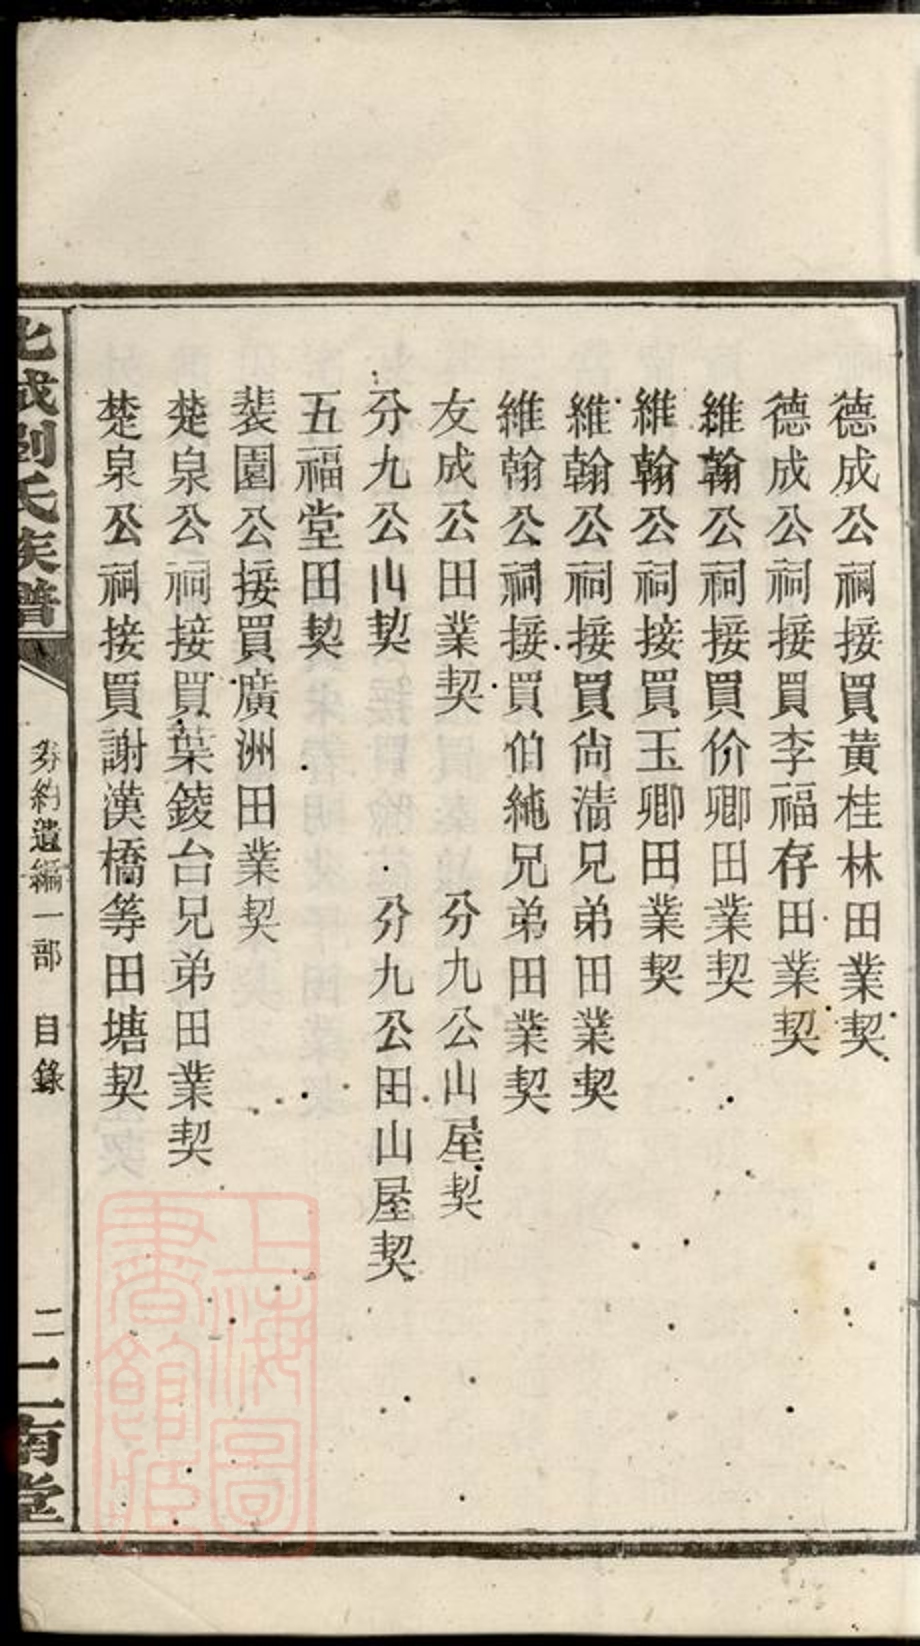 德成公祠接買黃桂林田業契
德成公祠接買李福存田業契
維翰公祠接買价卿田業契
維翰公祠接買玉卿田業契
維翰公祠接買尙淸兄弟田業契
維翰公祠接買伯純兄弟田業契
友成公田業契　分九公山屋契
分九公山契　分九公田山屋契
五福堂田契
裴園公接買廣洲田業契
楚泉公祠接買葉錂台兄弟田業契
楚泉公祠接買謝漢橋等田塘契
劉氏族譜
契約遺編一部　目錄
二
南堂
上海圖書館藏